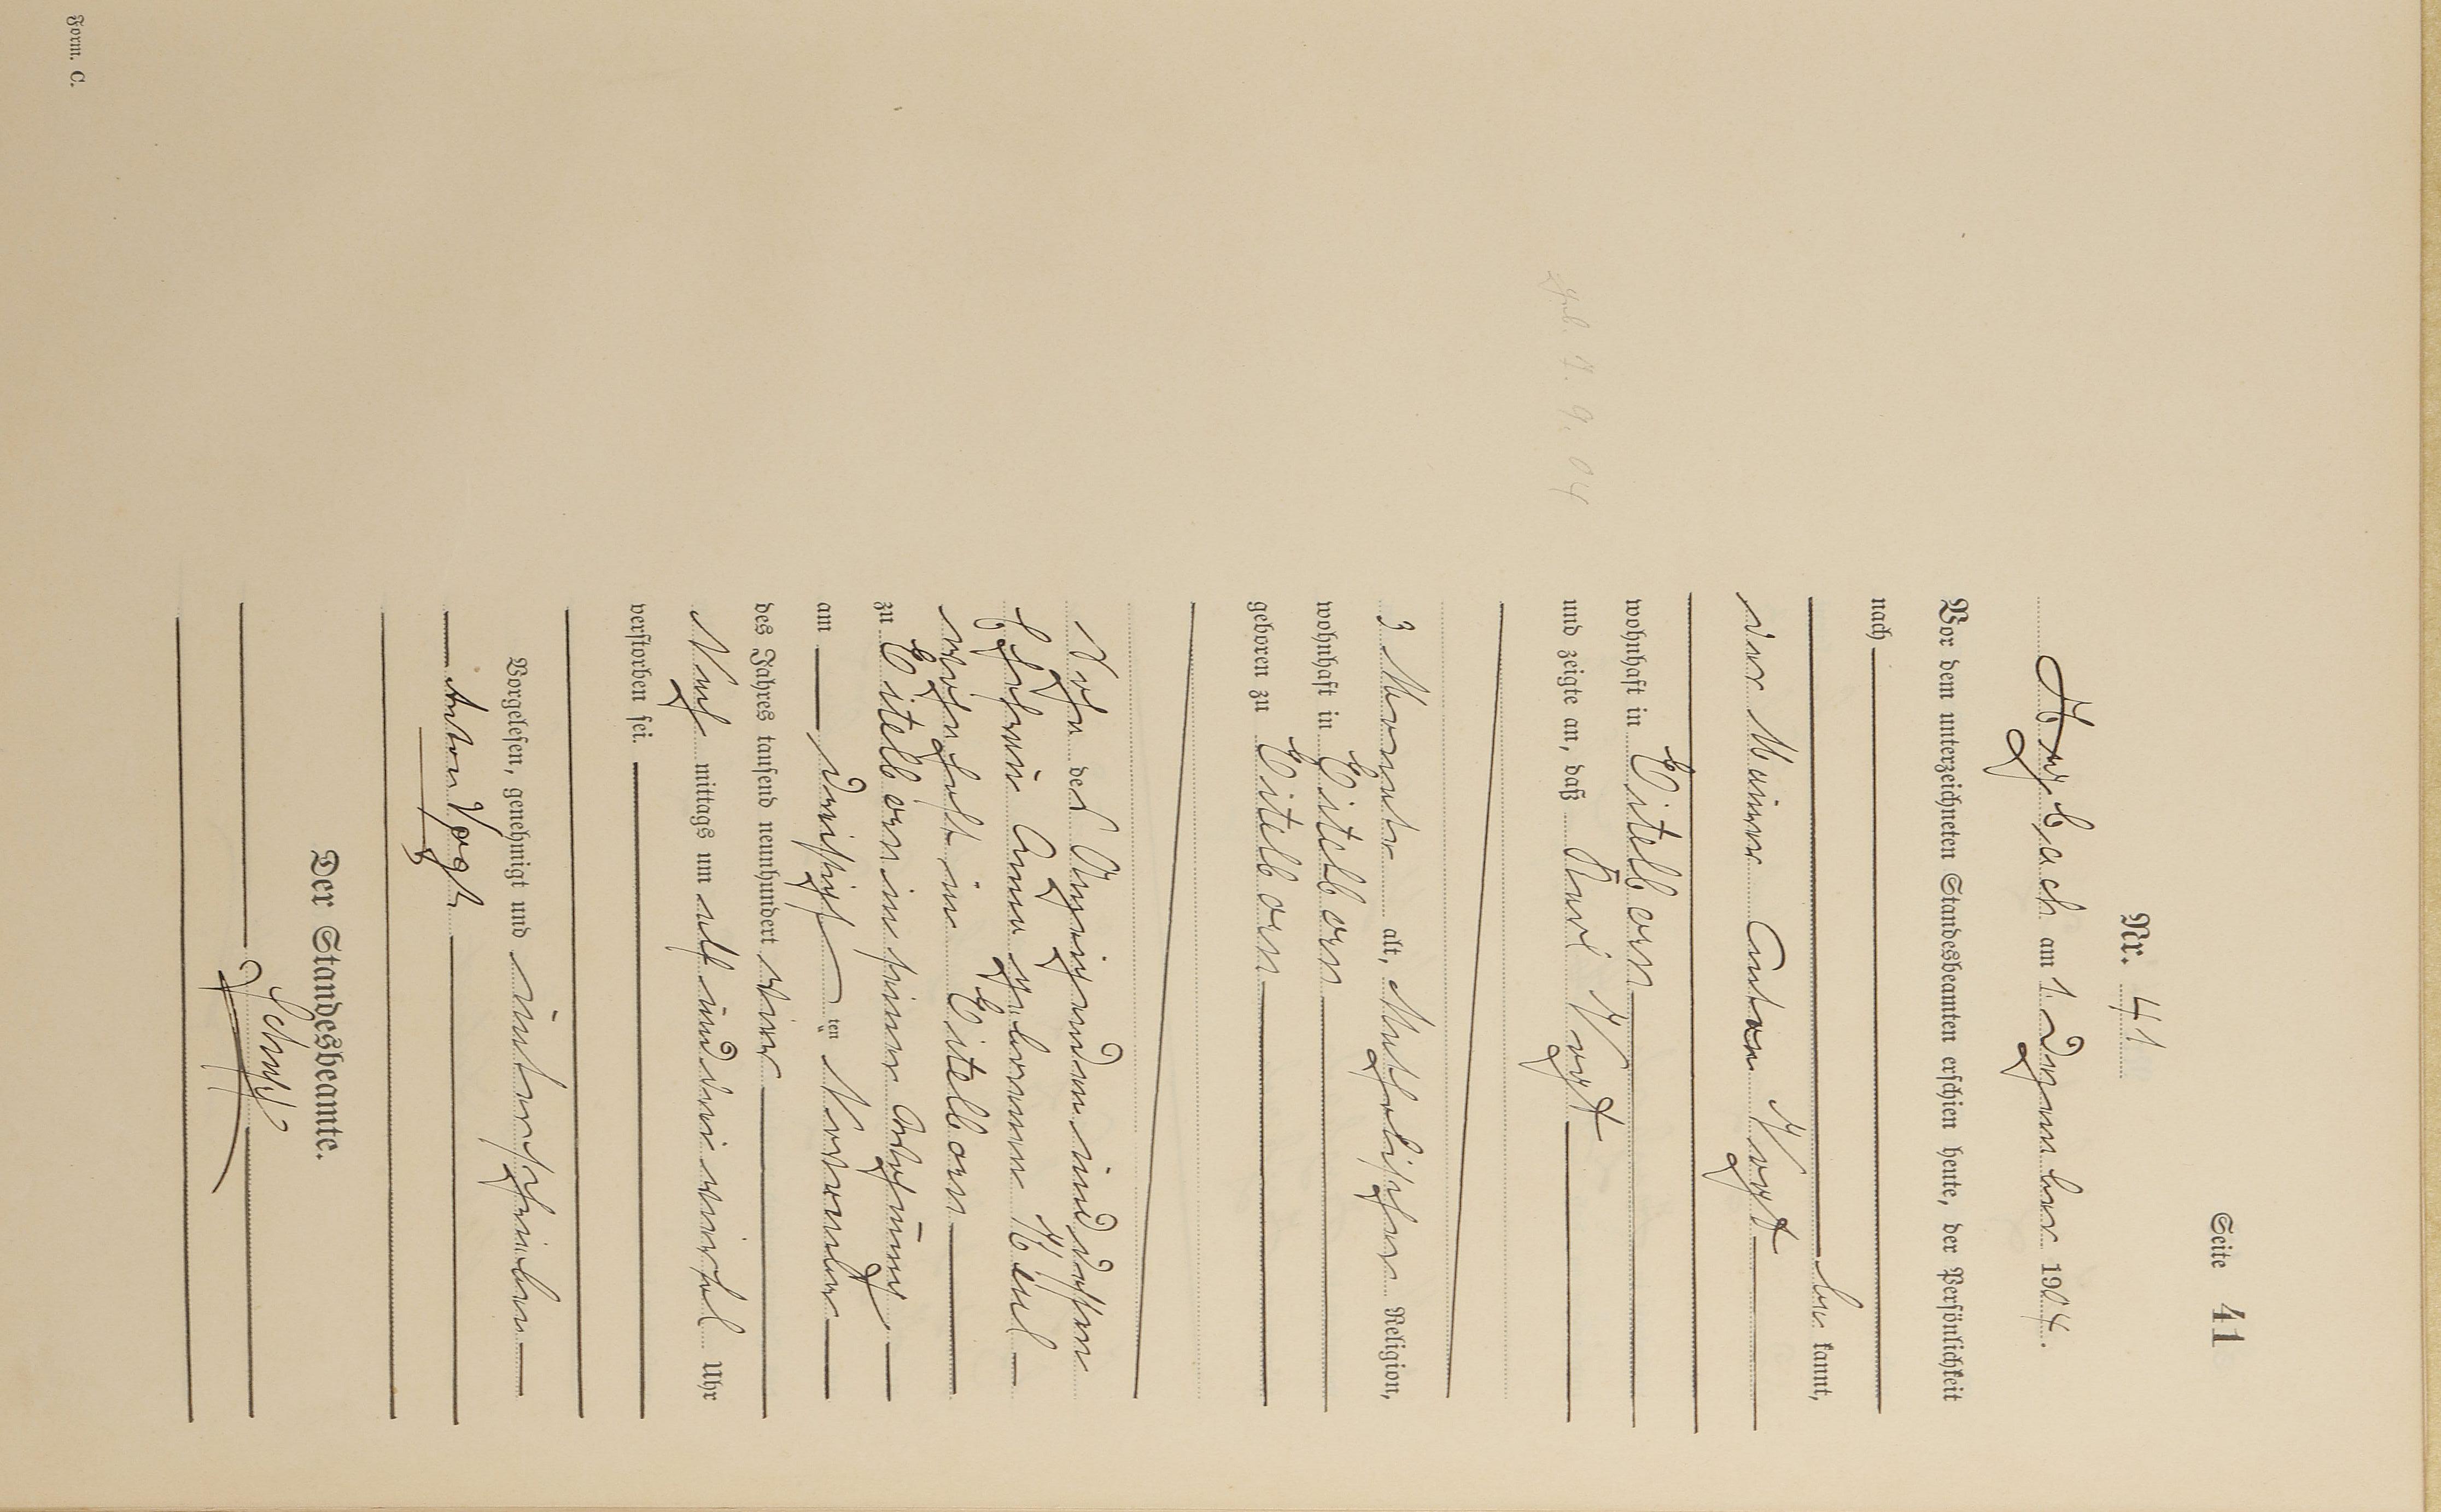 Seite 41
Nr. 41
Arzbach am 1. Dezember 1904.
Vor dem unterzeichneten Standesbeamten erschien heute, der Persönlichkeit
nach
be kannt,
der Maurer Anton Vogt
wohnhaft in Eitelborn
und zeigte an, daß Karl Vogt
geb. 7. 9. 04
3 Monate alt, katholischer Religion,
wohnhaft in Eitelborn
geboren zu Eitelborn
Sohn des Anzeigenden und dessen
Ehefrau Anna geborenen
wohnhaft in Eitelborn
zu Eitelborn in seiner Behausung
am dreißigsten November
des Jahres tausend neunhundert vier
Nach mittags um elf und drei viertel Uhr
verstorben sei.
Vorgelesen, genehmigt und unterschrieben
Anton Vogt
Der Standesbeamte.
Form. C.